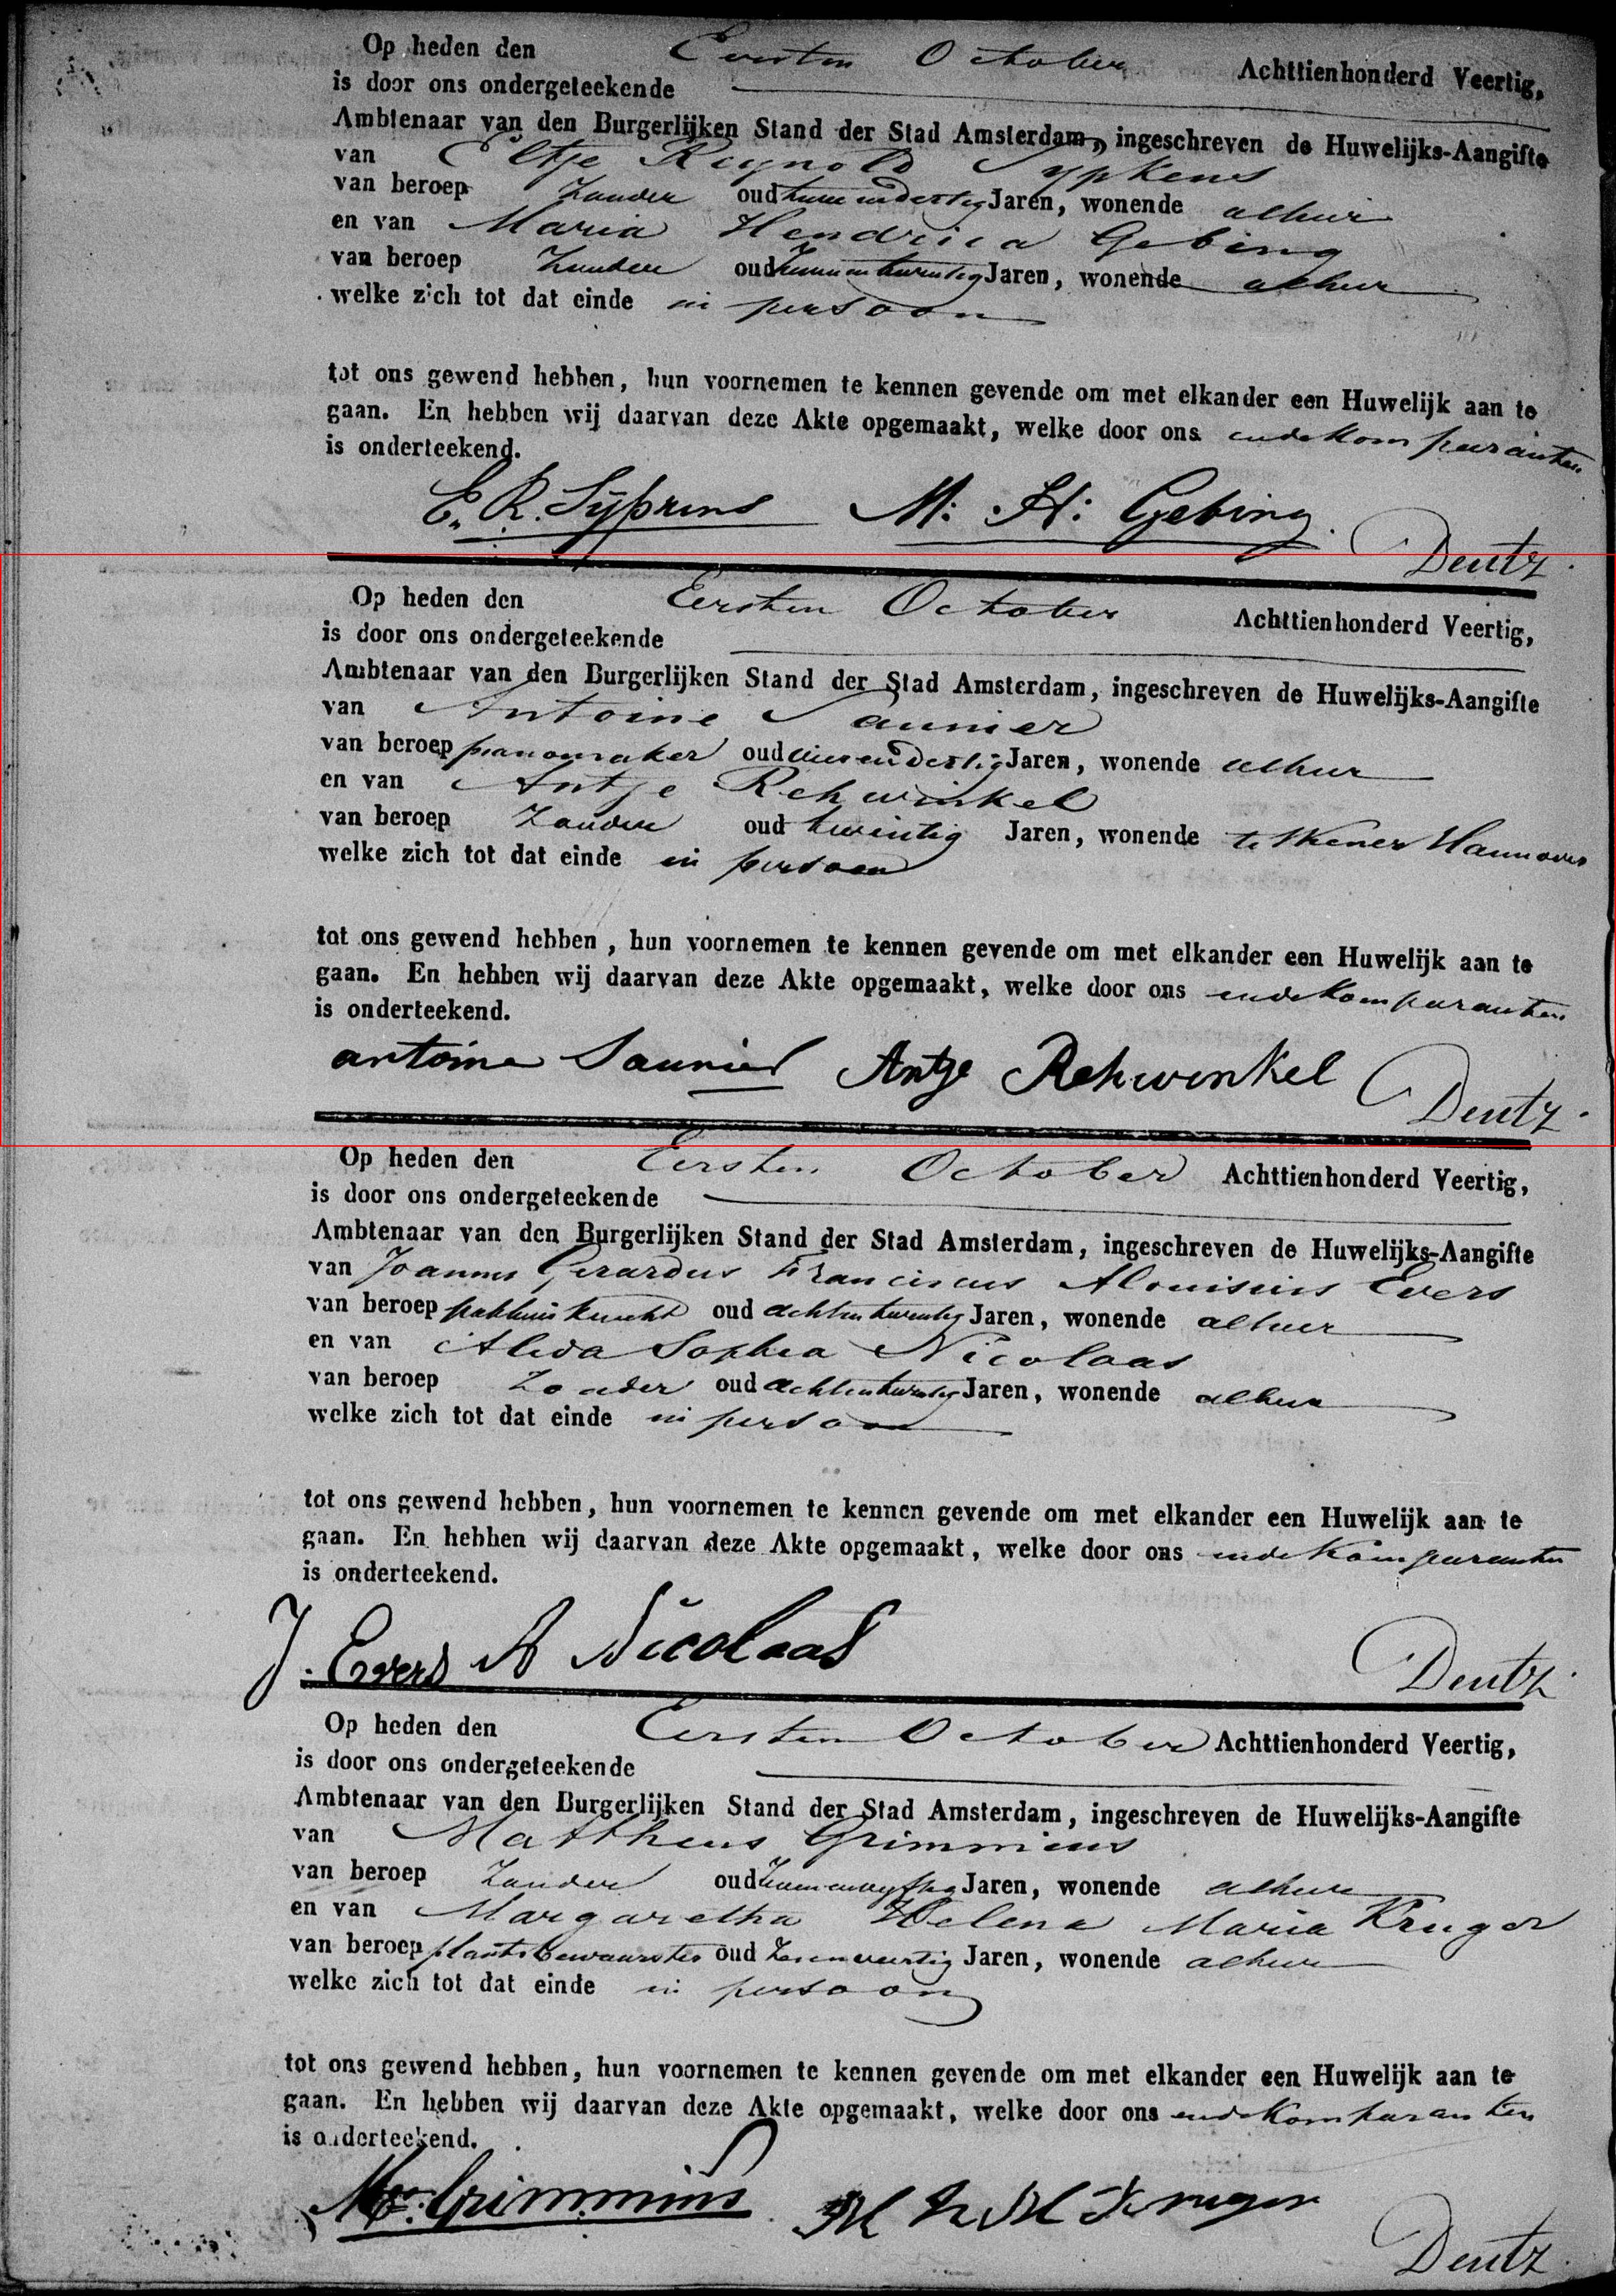 Op heden den Eersten October Achttienhonderd Veertig,
is door ons ondergeteekende
Ambtenaar van den Burgerlijken Stand der Stad Amsterdam, ingeschreven de Huwelijks-Aangifte
van Eltje Reynold Sypkens
van beroep Zonder oud twee en dertig Jaren, wonende alhier
en van Maria Hendrica Gebing
van beroep Zonder oud Jaren, wonende alhier
welke zich tot dat einde in persoon
tot ons gewend hebben, hun voornemen te kennen gevende om met elkander een Huwelijk aan te
gaan. En hebben wij daarvan deze Akte opgemaakt, welke door ons en de Komparanten
is onderteekend.
E. R. Sypkens M: H: Gebing
Deutz
Op heden den Eersten October Achttienhonderd Veertig,
is door ons ondergeteekende
Ambtenaar van den Burgerlijken Stand der Stad Amsterdam, ingeschreven de Huwelijks-Aangifte
van Antoine Saunier
van beroep pianomaker oud vier en dertig Jaren, wonende alhier
en van Antje Rehwinkel
van beroep Zonder oud twintig Jaren, wonende te Wener Hannover
welke zich tot dat einde in persoon
tot ons gewend hebben, hun voornemen te kennen gevende om met elkander een Huwelijk aan te
gaan. En hebben wij daarvan deze Akte opgemaakt, welke door ons en de Komparanten
is onderteekend.
antoine Saunier Antje Rehwinkel
Deutz
Op heden den Eersten October Achttienhonderd Veertig,
is door ons ondergeteekende
Ambtenaar van den Burgerlijken Stand der Stad Amsterdam, ingeschreven de Huwelijks-Aangifte
van Joannes Gerardus Franciscus Alouisius Evers
van beroep pakhuisknecht oud achtentwintig Jaren, wonende alhier
en van Alida Sophia Nicolaas
van beroep Zonder oud achtentwintig Jaren, wonende alhier
welke zich tot dat einde in persoon
tot ons gewend hebben, hun voornemen te kennen gevende om met elkander een Huwelijk aan te
gaan. En hebben wij daarvan deze Akte opgemaakt, welke door ons en de Komparanten
is onderteekend.
J. Evers A Nicolaas
Deutz
Op heden den Eersten October Achttienhonderd Veertig,
is door ons ondergeteekende
Ambtenaar van den Burgerlijken Stand der Stad Amsterdam, ingeschreven de Huwelijks-Aangifte
van Mattheus Grimmius
van beroep Zonder oud Jaren, wonende alhier
en van Margaretha Helena Maria Kruger
van beroep plaatsbewaarster oud Jaren, wonende alhier
welke zich tot dat einde in persoon
tot ons gewend hebben, hun voornemen te kennen gevende om met elkander een Huwelijk aan te
gaan. En hebben wij daarvan deze Akte opgemaakt, welke door ons en de Komparanten
is onderteekend.
Ms. Grimmius M H M Kruger
Deutz